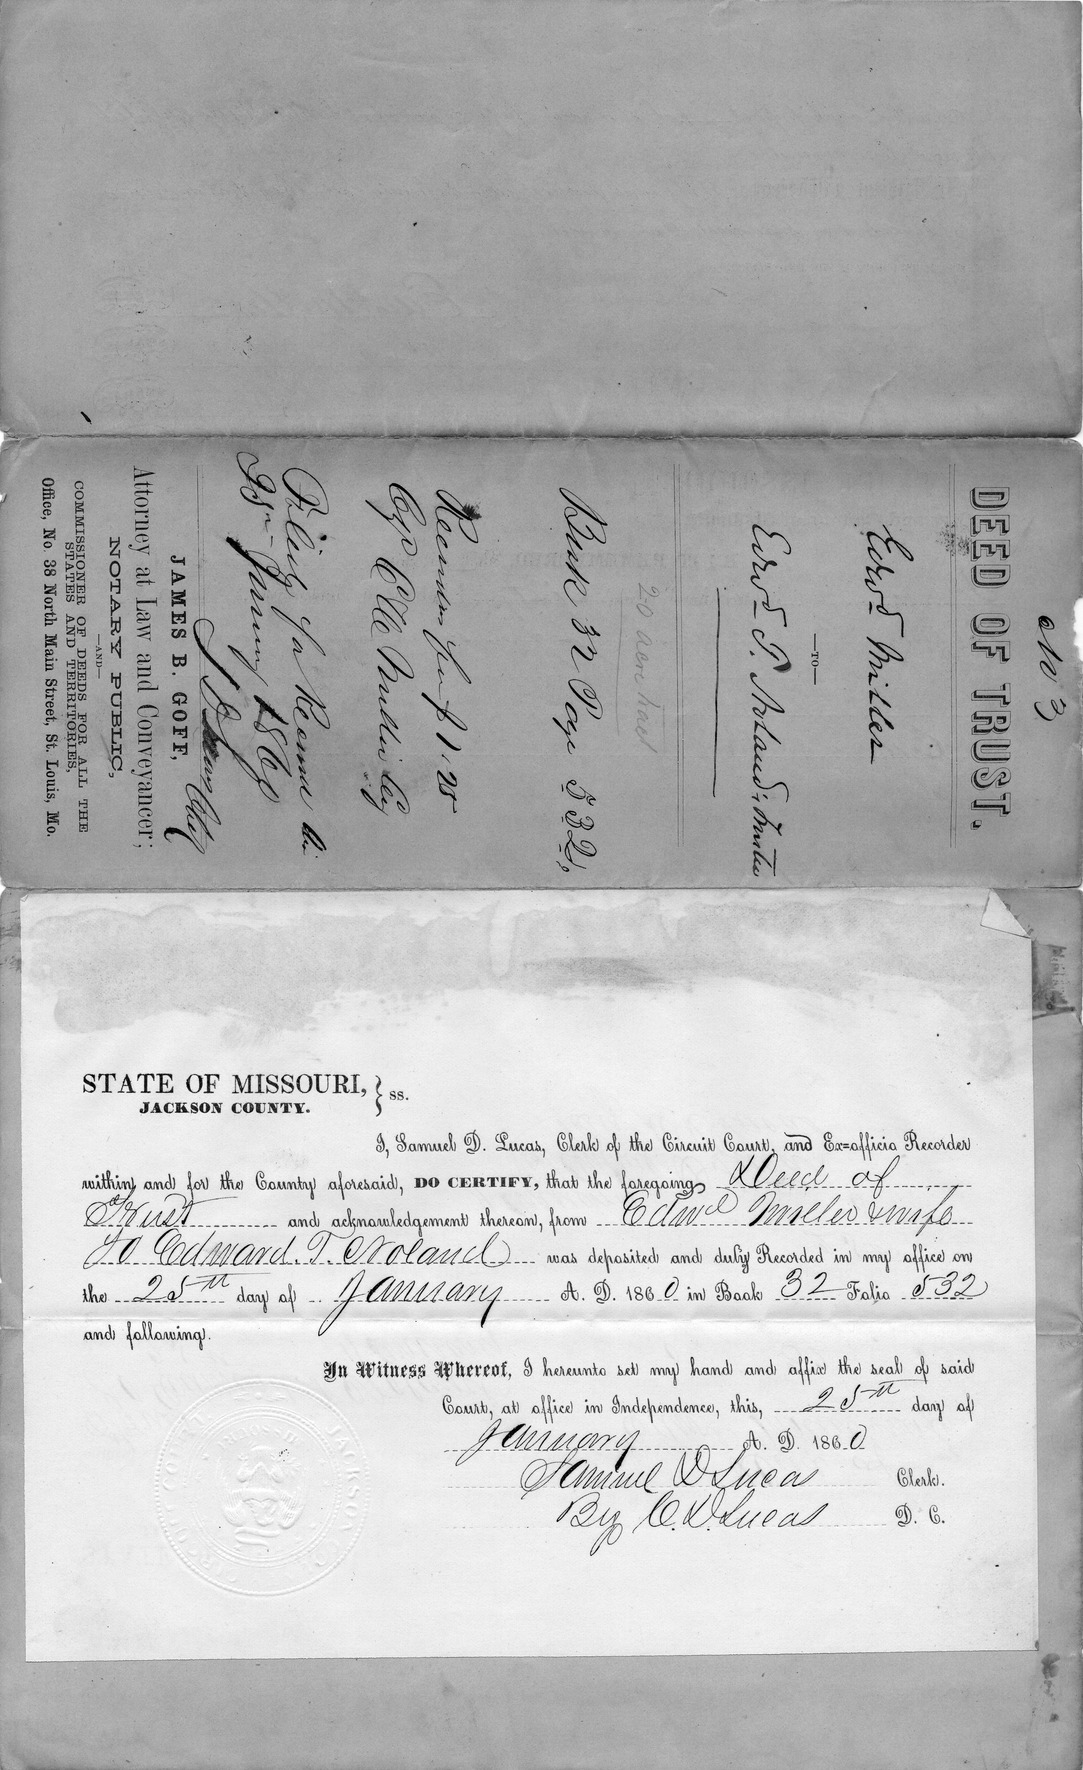 No 3
DEED OF TRUST.
Edwd Miller
—TO—
Edwd T. Noland, Trustee
20 acre tract
Book 32 Page 532,
Recorders fee $1.25
Filed for Record
25th January 1860
S D Lucas Clk
JAMES B. GOFF,
Attorney at Law and Conveyancer;
NOTARY PUBLIC,
—AND—
COMMISSIONER OF DEEDS FOR ALL THE
STATES AND TERRITORIES,
Office, No. 38 North Main Street, St. Louis, Mo.
STATE OF MISSOURI, } ss.
JACKSON COUNTY.
I, Samuel D. Lucas, Clerk of the Circuit Court, and Ex=officio Recorder
within and for the County aforesaid, DO CERTIFY, that the foregoing Deed of
Trust and acknowledgement thereon, from Edwd Miller & wife
To Edward. T. Noland was deposited and duly Recorded in my office on
the 25th day of January A. D. 1860 in Book 32 Folio 532
and following.
In Witness Whereof, I hereunto set my hand and affix the seal of said
Court, at office in Independence, this, 25th day of
January A. D. 1860
Samuel D Lucas Clerk.
By C. D. Lucas D. C.